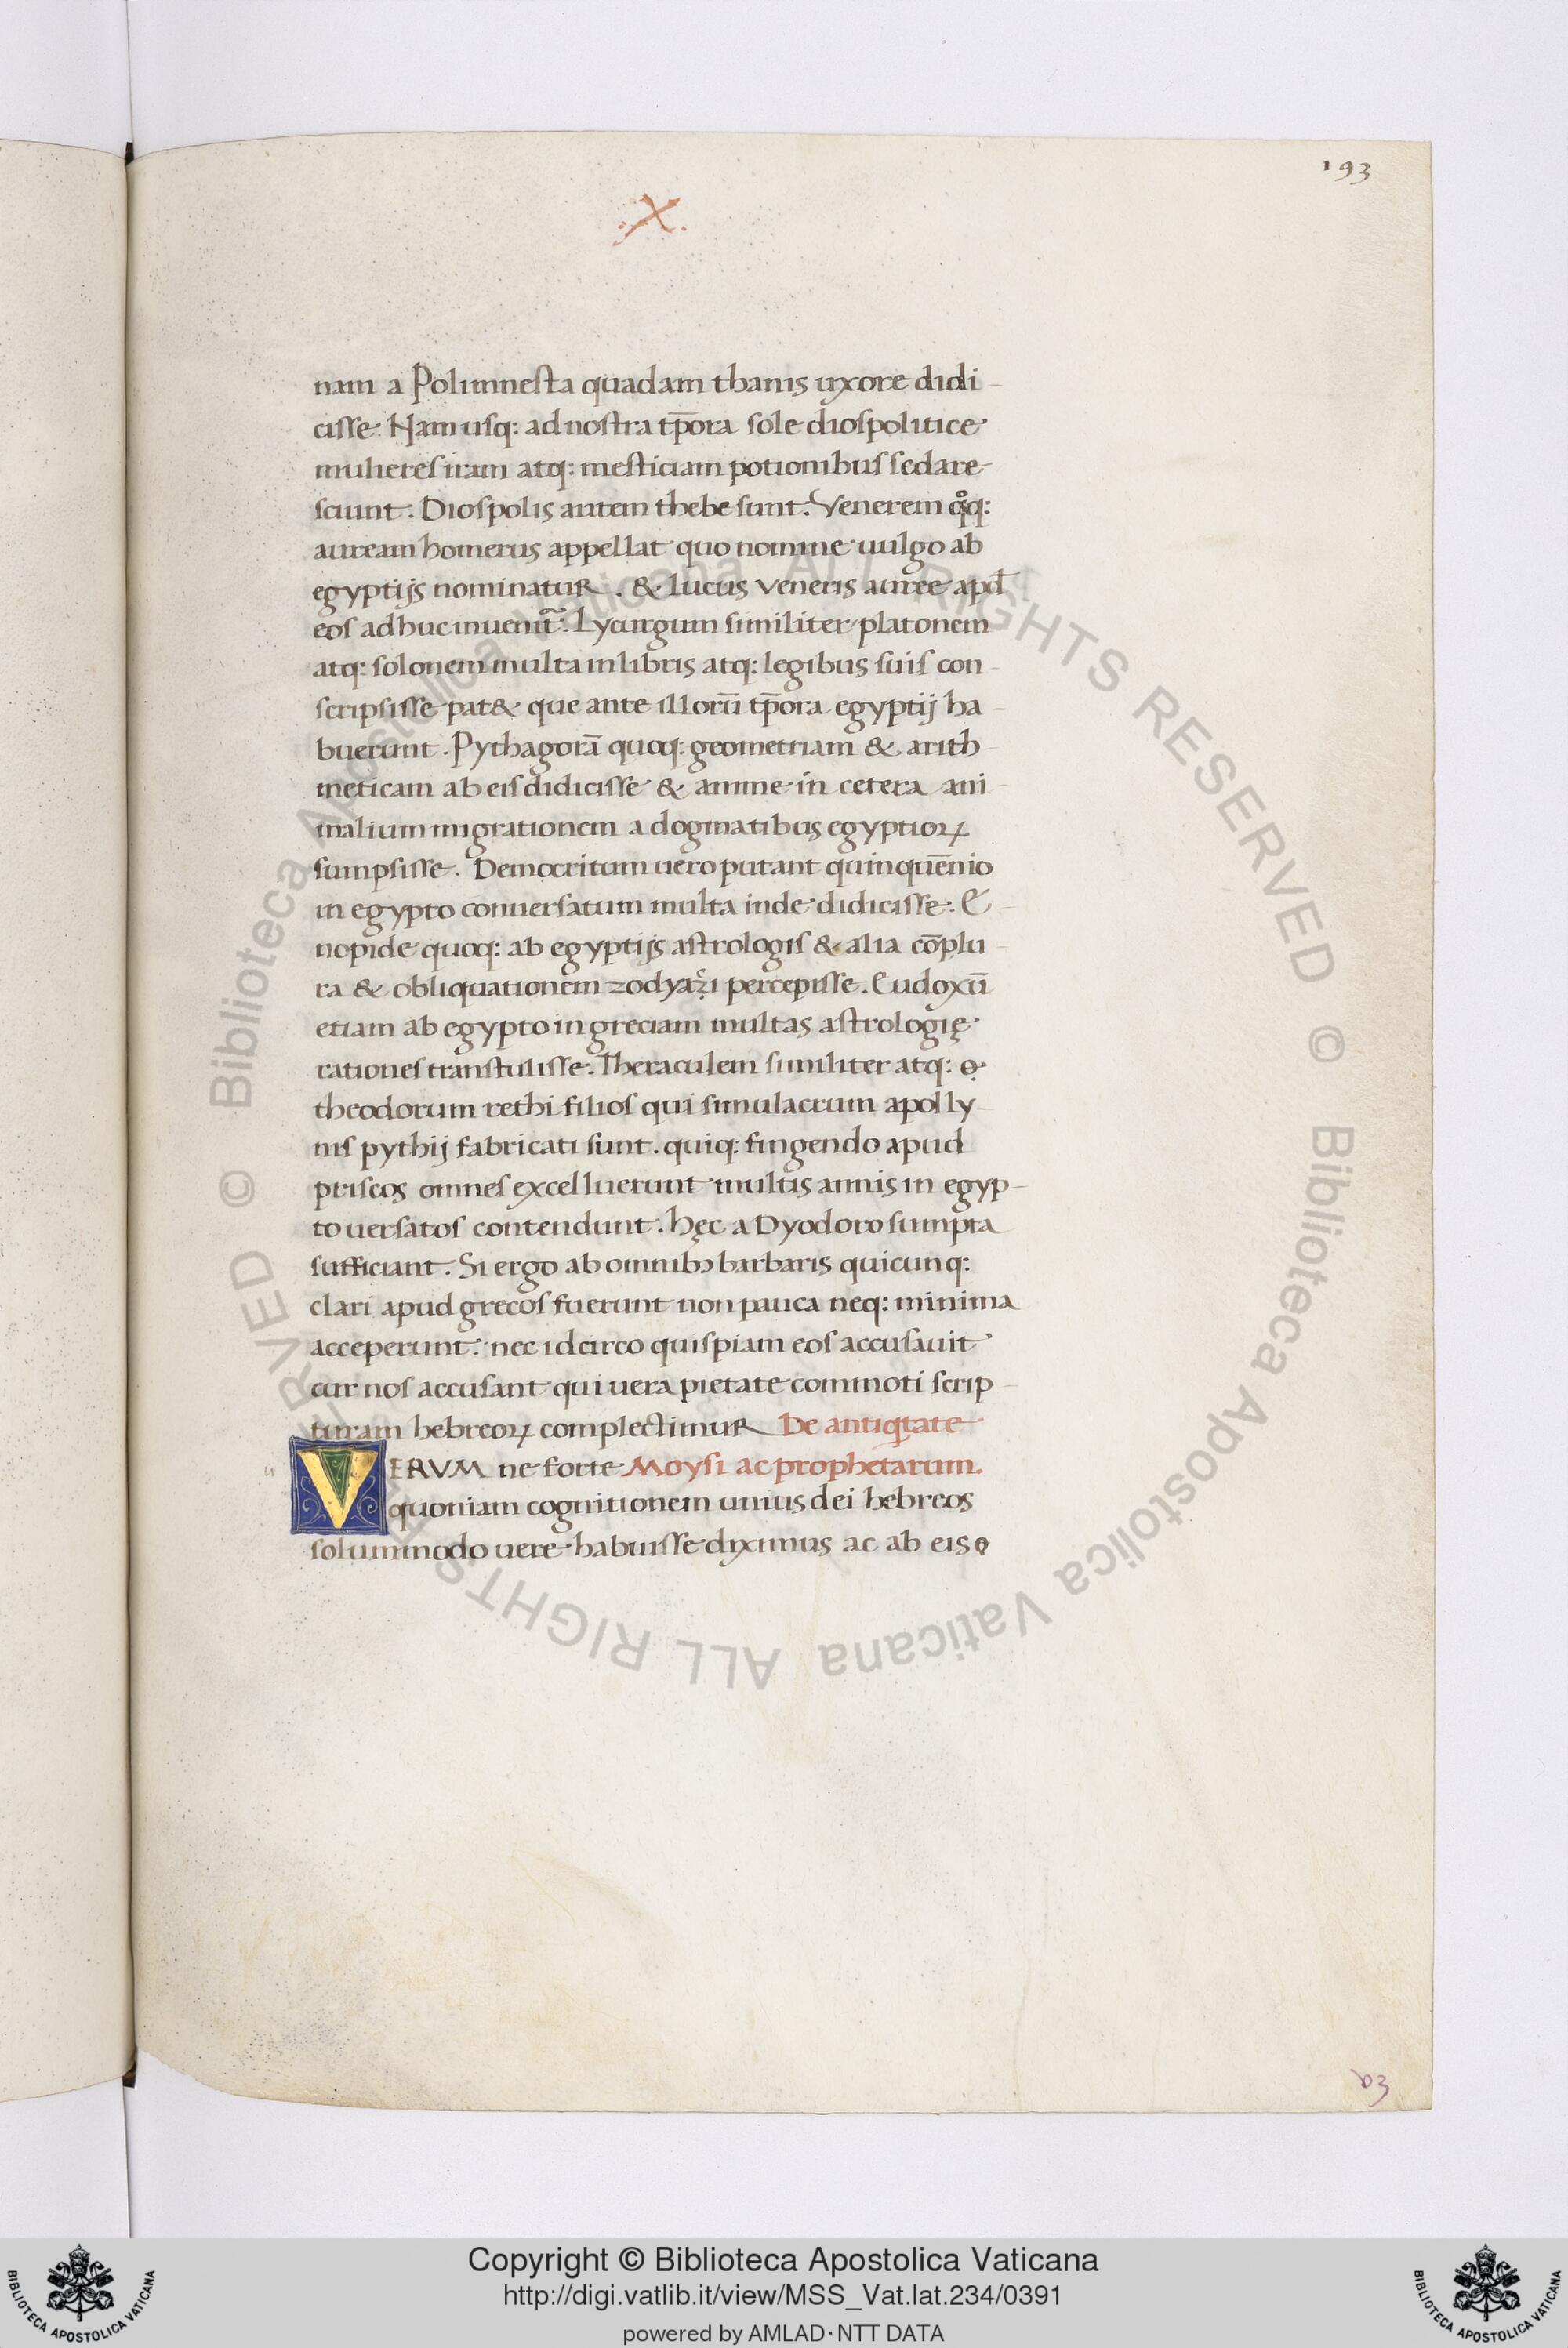 193
.X.
nam a Polimnesta quadam thanis uxore didi-
cisse. Nam usq: ad nostra tp̄ora sole diospolitice
mulieres iram atq: mesticiam potionibus sedare
sciunt. Diospolis autem thebe sunt. Venerem qͦq:
auream homerus appellat quo nomine uulgo ab
egyptijs nominatur. & lucus veneris auree apđ
eos adhuc inuenit̃. Lycurgum similiter platonem
atq: solonem multa in libris atq: legibus suis con-
scripsisse pat& que ante illorū tp̄ora egyptij ha-
buerunt. Pythagorā quoq: geometriam & arith-
meticam ab eis didicisse & anime in cetera ani-
malium migrationem a dogmatibus egyptioꝝ
sumpsisse. Democritum uero putant quinquēnio
in egypto conuersatum multa inde didicisse. E-
nopide quoq: ab egyptijs astrologis & alia cōplu-
ra & obliquationem zodyazi percepisse. Eudoxū
etiam ab egypto in greciam multas astrologię
rationes transtulisse. Theraculem similiter atq:
theodorum rethi filios qui simulacrum apolly-
nis pythij fabricati sunt. quiq: fingendo apud
priscos omnes excelluerunt multis annis in egyp-
to uersatos contendunt. hęc a Dyodoro sumpta
sufficiant. Si ergo ab omnibꝫ barbaris quicunq:
clari apud grecos fuerunt non pauca neq: minima
acceperunt. nec idcirco quispiam eos accusauit
cur nos accusant qui uera pietate commoti scrip-
turam hebreoꝝ complectimur De antiqtate
VERVM ne forte Moysi ac prophetarum.
quoniam cognitionem unius dei hebreos
solummodo uere habuisse diximus ac ab eis
b3
© Biblioteca Apostolica Vaticana ALL RIGHTS RESERVED © Biblioteca Apostolica Vaticana ALL RIGHTS RESERVED
Copyright © Biblioteca Apostolica Vaticana
http://digi.vatlib.it/view/MSS_Vat.lat.234/0391
powered by AMLAD·NTT DATA
BIBLIOTECA APOSTOLICA VATICANA
BIBLIOTECA APOSTOLICA VATICANA